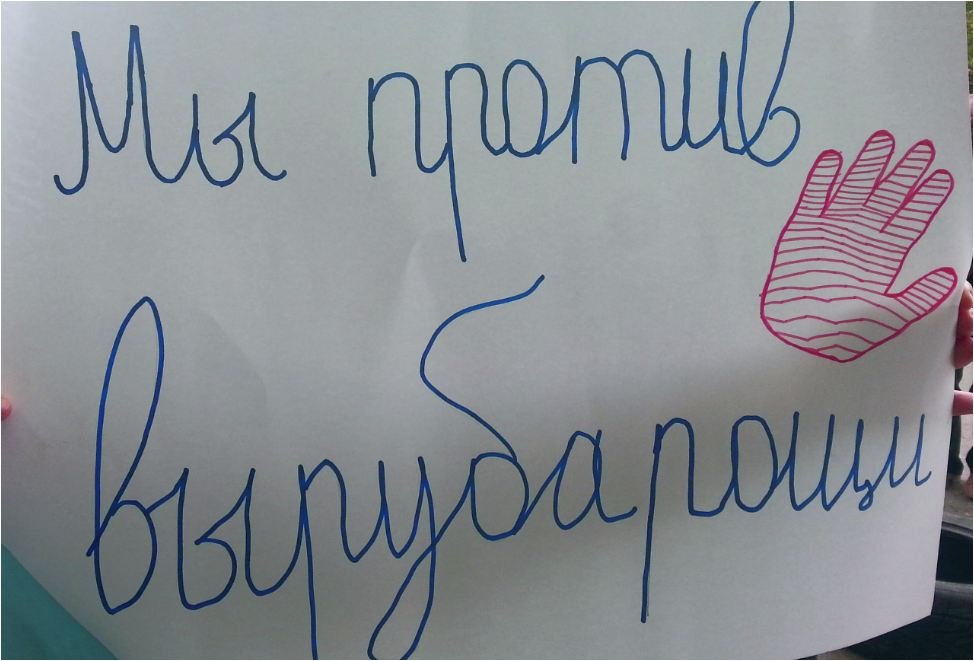 Мы против
выруба рощи